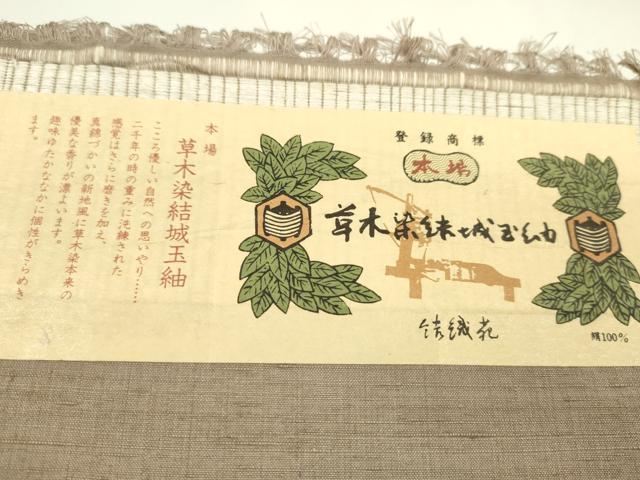 登録商標
本場
草木染結城玉紬
結織苑
絹100%
本場
草木染結城玉紬
こころ優しい自然への思いやり……
二千年の時の重みに洗練された
感覚はさらに磨きを加え、
真綿づかいの新地風に草木染本来の
優美な香りが漂よいます。
趣味ゆたかななかに個性がきらめき
ます。